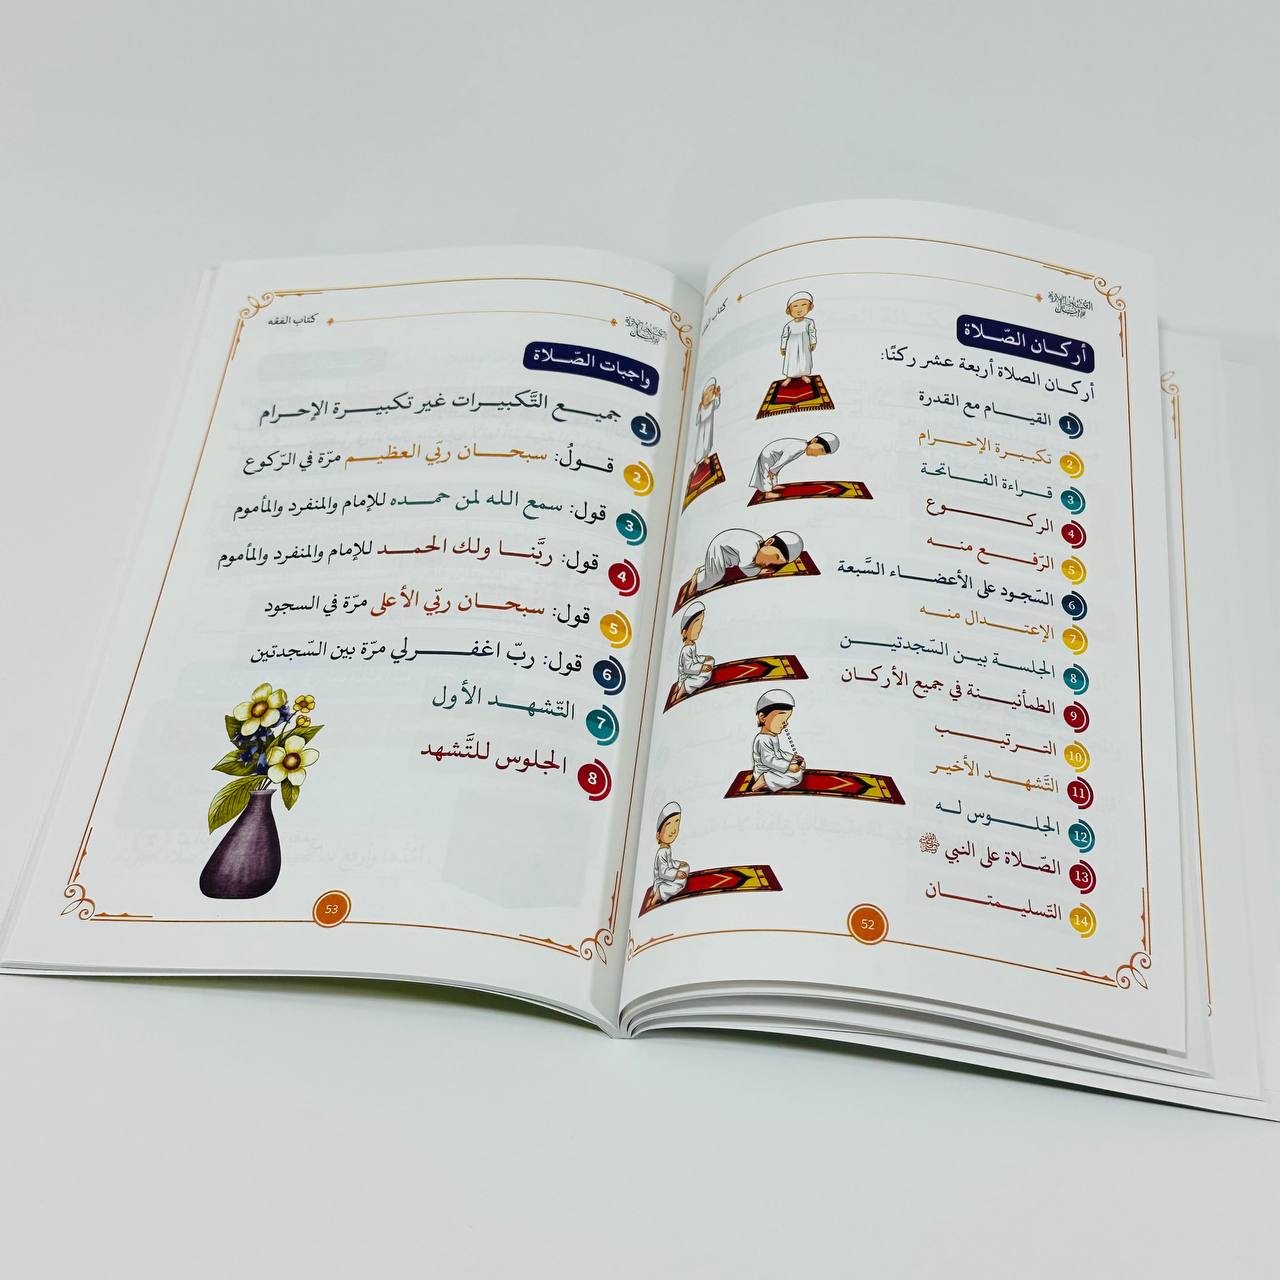 كتاب الفقه
أركان الصّلاة
أركان الصلاة أربعة عشر ركنًا:
1 القيام مع القدرة
2 تكبيرة الإحرام
3 قراءة الفاتحة
4 الركوع
5 الرّفع منه
6 السّجود على الأعضاء السَّبعة
7 الإعتدال منه
8 الجلسة بين السّجدتين
9 الطمأنينة في جميع الأركان
10 الترتيب
11 التَّشهد الأخير
12 الجلوس له
13 الصّلاة على النبي ﷺ
14 التّسليمتان
52
كتاب الفقه
واجبات الصّلاة
1 جميع التَّكبيرات غير تكبيرة الإحرام
2 قولُ: سبحان ربّي العظيم مرّة في الرّكوع
3 قول: سمع الله لمن حمده للإمام والمنفرد والمأموم
4 قول: ربَّنا ولك الحمد للإمام والمنفرد والمأموم
5 قول: سبحان ربّي الأعلى مرّة في السجود
6 قول: ربّ اغفرلي مرّة بين السّجدتين
7 التّشهد الأول
8 الجلوس للتَّشهد
53